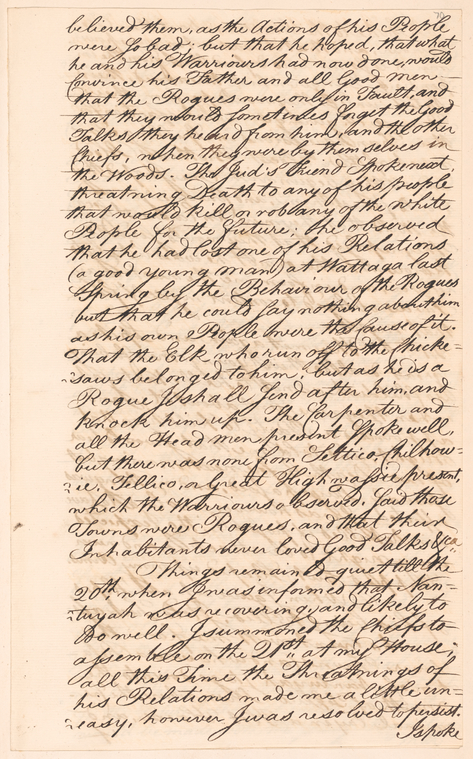 believed them, as the Actions of his People
were so bad; but that he hoped, that what
he and his Warriours had now done, would
Convince his Father and all Good men
that the Rogues were only in Fault, and
that they would sometimes forget the Good
Talks they heard from him, and the other
Chiefs, when they were by themselves in
the Woods. The Jud's Friend Spoke next,
threatning Death to any of his people
that would kill or rob any of the white
People for the future; he observed
that he had lost one of his Relations
(a good young man) at Wattaga last
Spring by the Behaviour of the Rogues
but that he could say nothing about him
as his own People were the Cause of it.
That the Elk who run off to the Chicke=
=saws belonged to him; but as he is a
Rogue I shall send after him, and
Knock him up. The Carpenter and
all the Head men present Spoke well,
but there was none from Settico, Chilhow=
=ie, Tellico, or Great Highwassie present,
which the Warriours observed. Said those
Towns were Rogues, and that their
Inhabitants never loved Good Talks &ca.
Things remain'd quiet till the
20th. when I was informed that Nan=
=tuyah was recovering, and likely to
Do well. I summoned the Chiefs to
assemble on the 21st. at my House;
all this Time the Threatnings of
his Relations made me a little un=
=easy, however I was resolved to persist.
I spoke